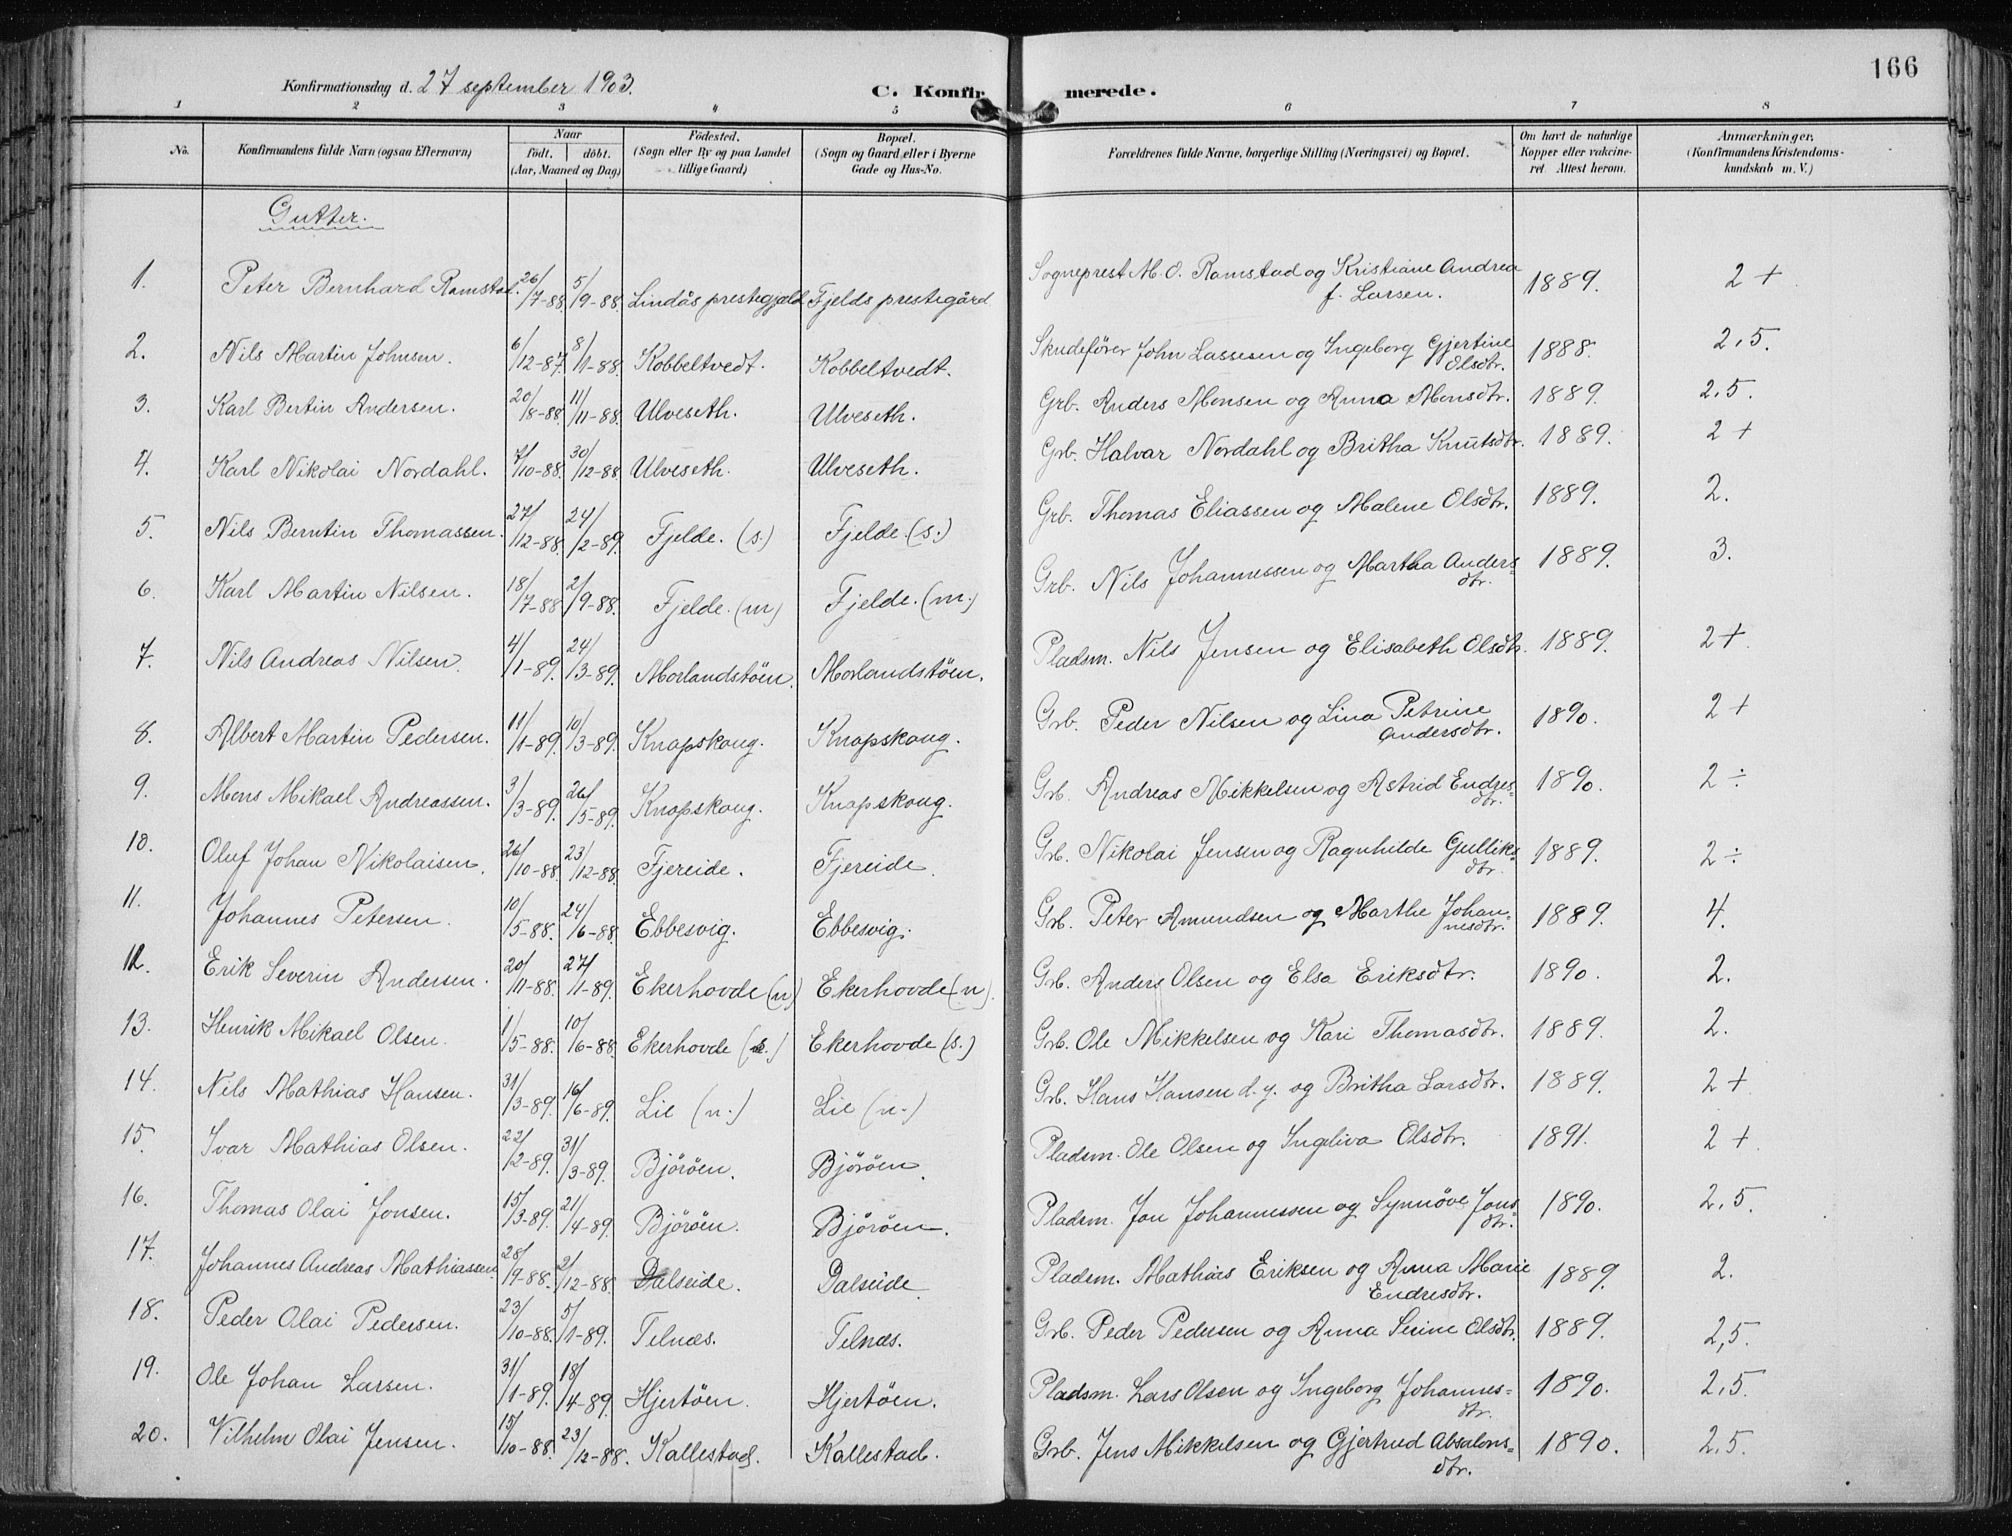 166
Konfirmationsdag d. 27 september 1903.
C. Konfirmerede.
1 2 3 4 5 6 7 8
No. | Konfirmandens fulde Navn (ogsaa Efternavn) | Naar født. | døbt. (Aar, Maaned og Dag) | Fødested. (Sogn eller By og paa Landet tillige Gaard) | Bopæl. (Sogn og Gaard eller i Byerne Gade og Hus-No. | Forældrenes fulde Navne, borgerlige Stilling (Næringsvei) og Bopæl. | Om havt de naturlige Kopper eller vakcineret. Attest herom. | Anmærkninger. (Konfirmandens Kristendomskundskab m. V.)
Gutter.
1. Peter Bernhard Ramstad. 26/7-88. 5/9-88. Lindås prestegjæld Fjelds prestegård Sogneprest M. O. Ramstad og Kristiane Andrea f. Larsen. 1889. 2+
2. Nils Martin Johnsen. 6/12-87. 8/1-88. Kobbeltvedt. Kobbeltvedt. Skudefører John Lassesen og Ingeborg Gjertine Olsdtr. 1888. 2,5.
3. Karl Bertin Andersen. 20/8-88. 11/11-88. Ulveseth. Ulveseth. Grb. Anders Monsen og Anna Monsdtr. 1889. 2,5.
4. Karl Nikolai Nordahl. 7/10-88. 30/12-88. Ulveseth. Ulveseth. Grb. Halvar Nordahl og Britha Knutsdtr. 1889. 2+
5. Nils Berntin Thomassen. 27/12-88. 24/2-89. Fjelde. (s.) Fjelde. (s.) Grb. Thomas Eliassen og Malene Olsdtr. 1889. 2.
6. Karl Martin Nilsen. 18/7-88 2/9-88. Fjelde. (m) Fjelde. (m.) Grb. Nils Johannessen og Martha Andersdtr. 1889. 3.
7. Nils Andreas Nilsen. 4/1-89. 24/3-89. Morlandstøen. Morlandstøen. Pladsm. Nils Jensen og Elisabeth Olsdtr. 1889. 2+.
8. Albert Martin Pedersen. 11/1-89. 10/3-89. Knapskoug. Knapskoug. Grb. Peder Nilsen og Lina Petrine Andersdtr. 1890. 2+
9. Mons Mikael Andreassen. 3/3-89. 26/5-89. Knapskoug. Knapskoug. Grb. Andreas Mikkelsen og Astrid Endresdtr. 1890. 2÷
10. Oluf Johan Nikolaisen. 26/10-88. 23/12-88. Fjereide. Fjereide. Grb. Nikolai Jensen og Ragnhilde Gulliksdtr. 1889. 2÷
11. Johannes Petersen. 10/5-88. 24/6-88. Ebbesvig. Ebbesvig. Grb. Peter Amundsen og Marthe Johannesdtr. 1889. 4.
12. Erik Severin Andersen. 20/11-88. 27/1-89. Ekerhovde (n) Ekerhovde (n). Grb. Anders Olsen og Elsa Eriksdtr. 1890. 2.
13. Henrik Mikael Olsen. 1/5-88. 10/6-88. Ekerhovde (s.) Ekerhovde (s.) Grb. Ole Mikkelsen og Kari Thomasdtr. 1889. 2.
14. Nils Mathias Hansen. 31/3-89. 16/6-89. Lie (n.) Lie (n.) Grb. Hans Hansen d. y. og Britha Larsdtr. 1889. 2+
15. Ivar Mathias Olsen. 22/2-89. 31/3-89. Bjørøen. Bjørøen. Pladsm. Ole Olsen og Ingeliva Olsdtr. 1891. 2+
16. Thomas Olai Jonsen. 15/3-89. 21/4-89. Bjørøen. Bjørøen. Pladsm. Jon Johannessen og Synnøve Jonsdtr. 1890. 2,5.
17. Johannes Andreas Mathiassen. 28/9-88. 2/12-88. Dalseide. Dalseide. Pladsm. Mathias Eriksen og Anna Marie Endresdtr. 1889. 2.
18. Peder Olai Pedersen. 23/10-88. 5/1-89. Telnæs. Telnæs. Grb. Peder Pedersen og Anna Serine Olsdtr. 1889. 2,5.
19. Ole Johan Larsen. 31/1-89. 18/4-89. Hjertøen. Hjertøen. Pladsm. Lars Olsen og Ingeborg Johannesdtr. 1890. 2,5.
20. Vilhelm Olai Jensen. 15/10-88. 23/12-88. Kallestad. Kallestad. Grb. Jens Mikkelsen og Gjertrud Absalonsdtr. 1890. 2,5.